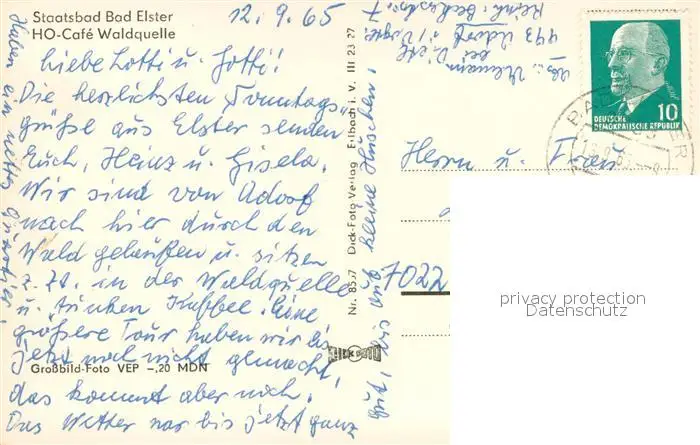 Staatsbad Bad Elster
HO-Café Waldquelle
12.9.65
Liebe Lotti u. Gotti!
Die herzlichsten Sonntags-
grüße aus Elster senden
Euch, Heinz u. Gisela.
Wir sind von Adorf
nach hier durch den
Wald gelaufen u. sitzen
z. Zt. in der Waldquelle
u. trinken Kaffee. Eine
größere Tour haben wir bis
jetzt noch nicht gemacht,
das kommt aber noch.
Das Wetter war bis jetzt ganz
gut, bis auf kleine Huschen.
Haben ein nettes Quartier.
Großbild-Foto VEP -,20 MDN
Nr. 8557 Dick-Foto-Verlag Erlbach i. V. III 23 27
DICK FOTO
Abs.: Ulmann
bei Dietz
993 Adorf i/Vogtl.
DEUTSCHE
DEMOKRATISCHE REPUBLIK
10
Herrn u. Frau
7022
privacy protection
Datenschutz